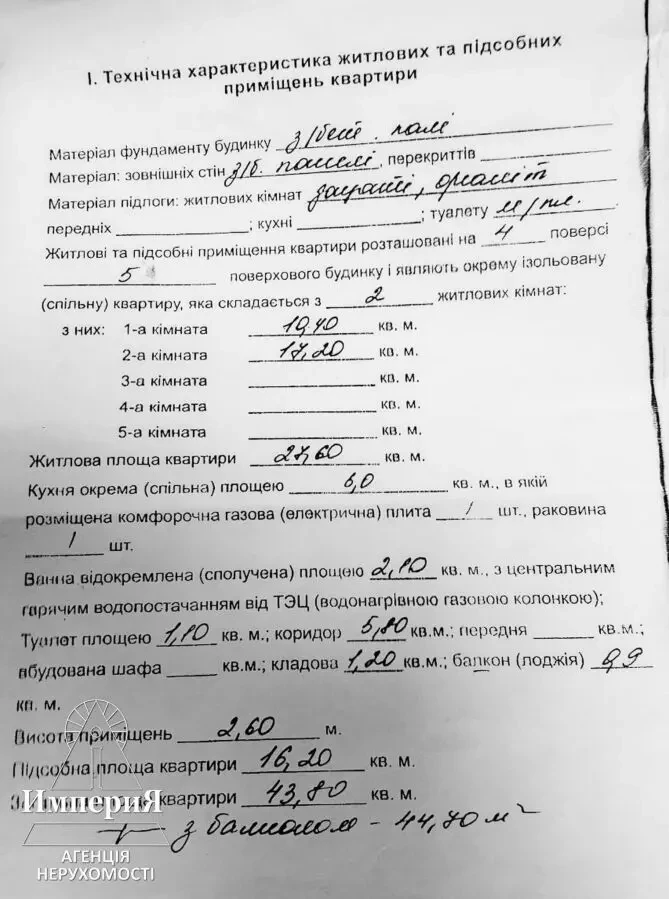 І. Технічна характеристика житлових та підсобних
приміщень квартири
Матеріал фундаменту будинку з/бет. палі
Матеріал: зовнішніх стін з/б. панелі, перекриттів
Матеріал підлоги: житлових кімнат
передніх ; кухні ; туалету м/пл.
Житлові та підсобні приміщення квартири розташовані на 4 поверсі
5 поверхового будинку і являють окрему ізольовану
(спільну) квартиру, яка складається з 2 житлових кімнат:
з них: 1-а кімната 10,40 кв. м.
2-а кімната 17,20 кв. м.
3-а кімната кв. м.
4-а кімната кв. м.
5-а кімната кв. м.
Житлова площа квартири 27,60 кв. м.
Кухня окрема (спільна) площею 6,0 кв. м., в якій
розміщена комфорочна газова (електрична) плита 1 шт., раковина
1 шт.
Ванна відокремлена (сполучена) площею 2,10 кв. м., з центральним
гарячим водопостачанням від ТЭЦ (водонагрівною газовою колонкою);
Туалет площею 1,10 кв. м.; коридор 5,80 кв.м.; передня кв.м.;
вбудована шафа кв.м.; кладова 1,20 кв.м.; балкон (лоджія) 0,9
кв. м.
Висота приміщень 2,60 м.
Підсобна площа квартири 16,20 кв. м.
квартири 43,80 кв. м.
з балконом - 44,70 м²
ИмпериЯ
АГЕНЦІЯ
НЕРУХОМОСТІ